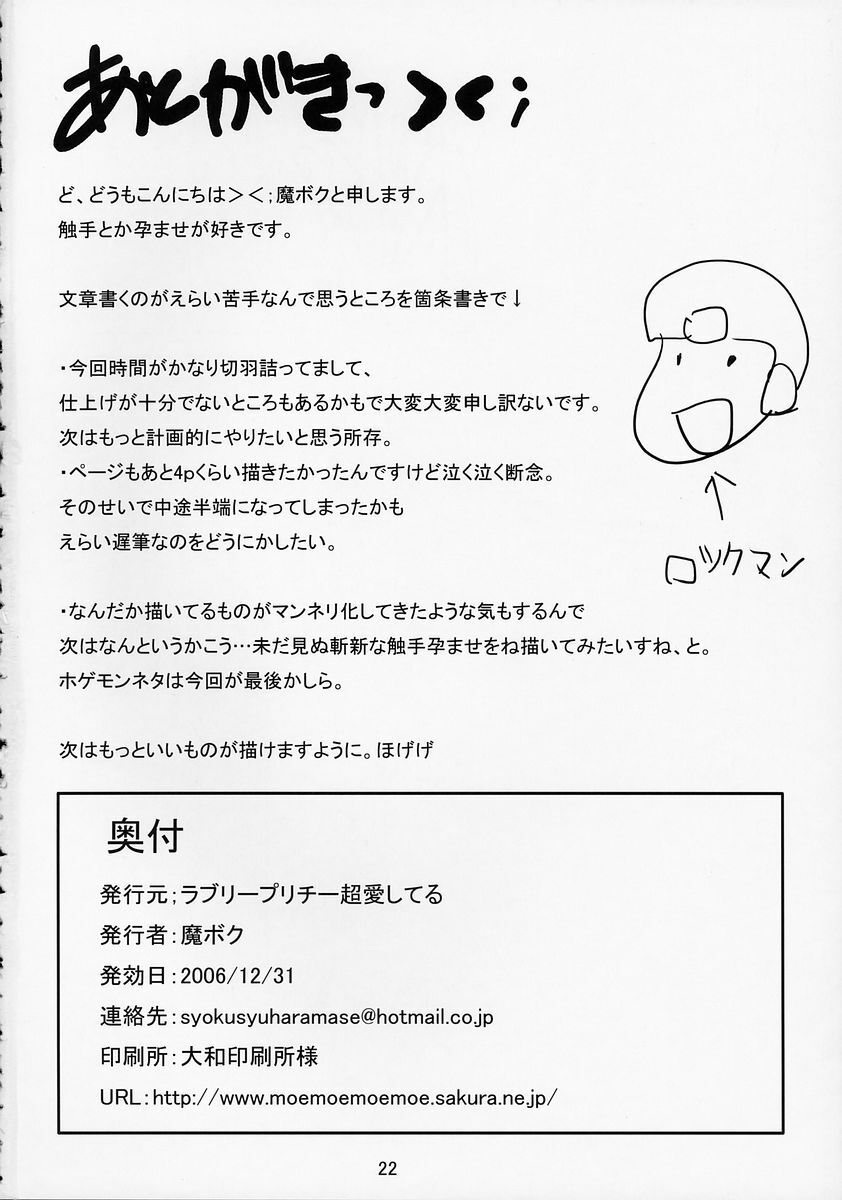 あとがきっ><;
ど、どうもこんにちは＞＜；魔ボクと申します。
触手とか孕ませが好きです。
文章書くのがえらい苦手なんで思うところを箇条書きで↓
・今回時間がかなり切羽詰ってまして、
仕上げが十分でないところもあるかもで大変大変申し訳ないです。
次はもっと計画的にやりたいと思う所存。
・ページもあと4pくらい描きたかったんですけど泣く泣く断念。
そのせいで中途半端になってしまったかも
えらい遅筆なのをどうにかしたい。
・なんだか描いてるものがマンネリ化してきたような気もするんで
次はなんというかこう…未だ見ぬ斬新な触手孕ませをね描いてみたいすね、と。
ホゲモンネタは今回が最後かしら。
次はもっといいものが描けますように。ほげげ
↑
ロックマン
奥付
発行元；ラブリープリチー超愛してる
発行者：魔ボク
発効日：2006/12/31
連絡先：syokusyuharamase@hotmail.co.jp
印刷所：大和印刷所様
URL：http://www.moemoemoemoe.sakura.ne.jp/
22